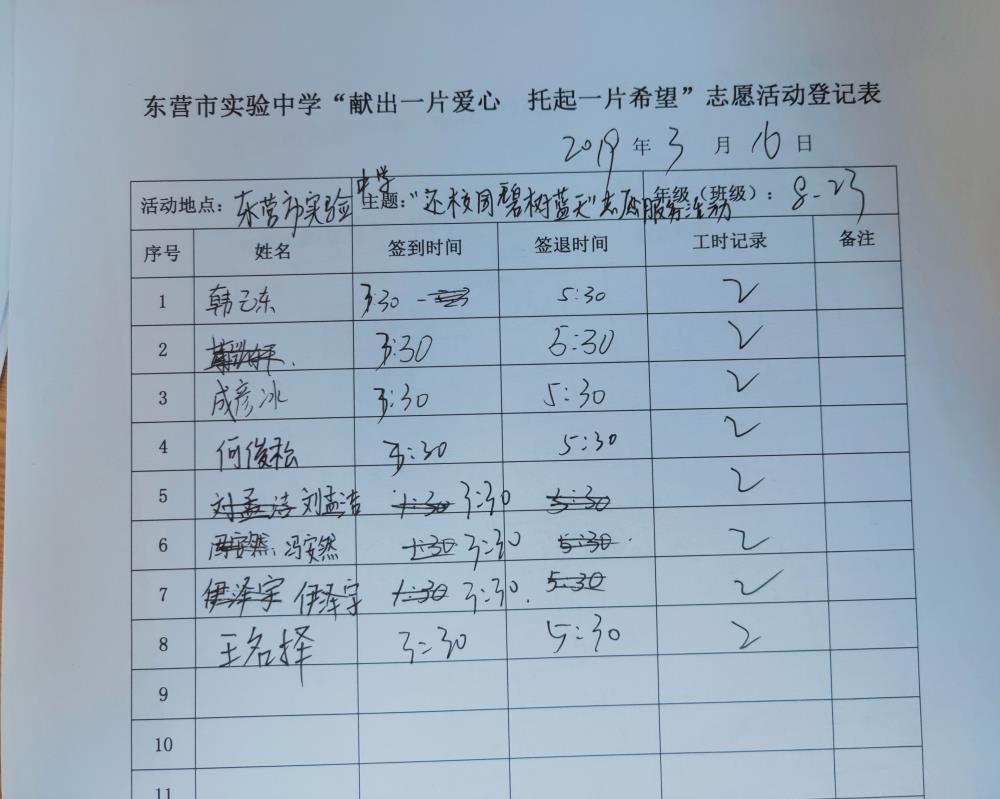 东营市实验中学“献出一片爱心 托起一片希望”志愿活动登记表
2019年3月16日
活动地点：东营市实验中学 主题：“还校园碧树蓝天”志愿服务活动 年级（班级）：8-23
序号 姓名 签到时间 签退时间 工时记录 备注
1 韩已东 3:30 - 5:30 2
2 3:30 5:30 2
3 成彦冰 3:30 5:30 2
4 何俊松 3:30 5:30 2
5 刘孟洁 刘孟洁 1:30 3:30 5:30 2
6 冯安然 冯安然 1:30 3:30 5:30 2
7 伊泽宇 伊泽宇 1:30 3:30. 5:30 2
8 王名择 3:30 5:30 2
9
10
11